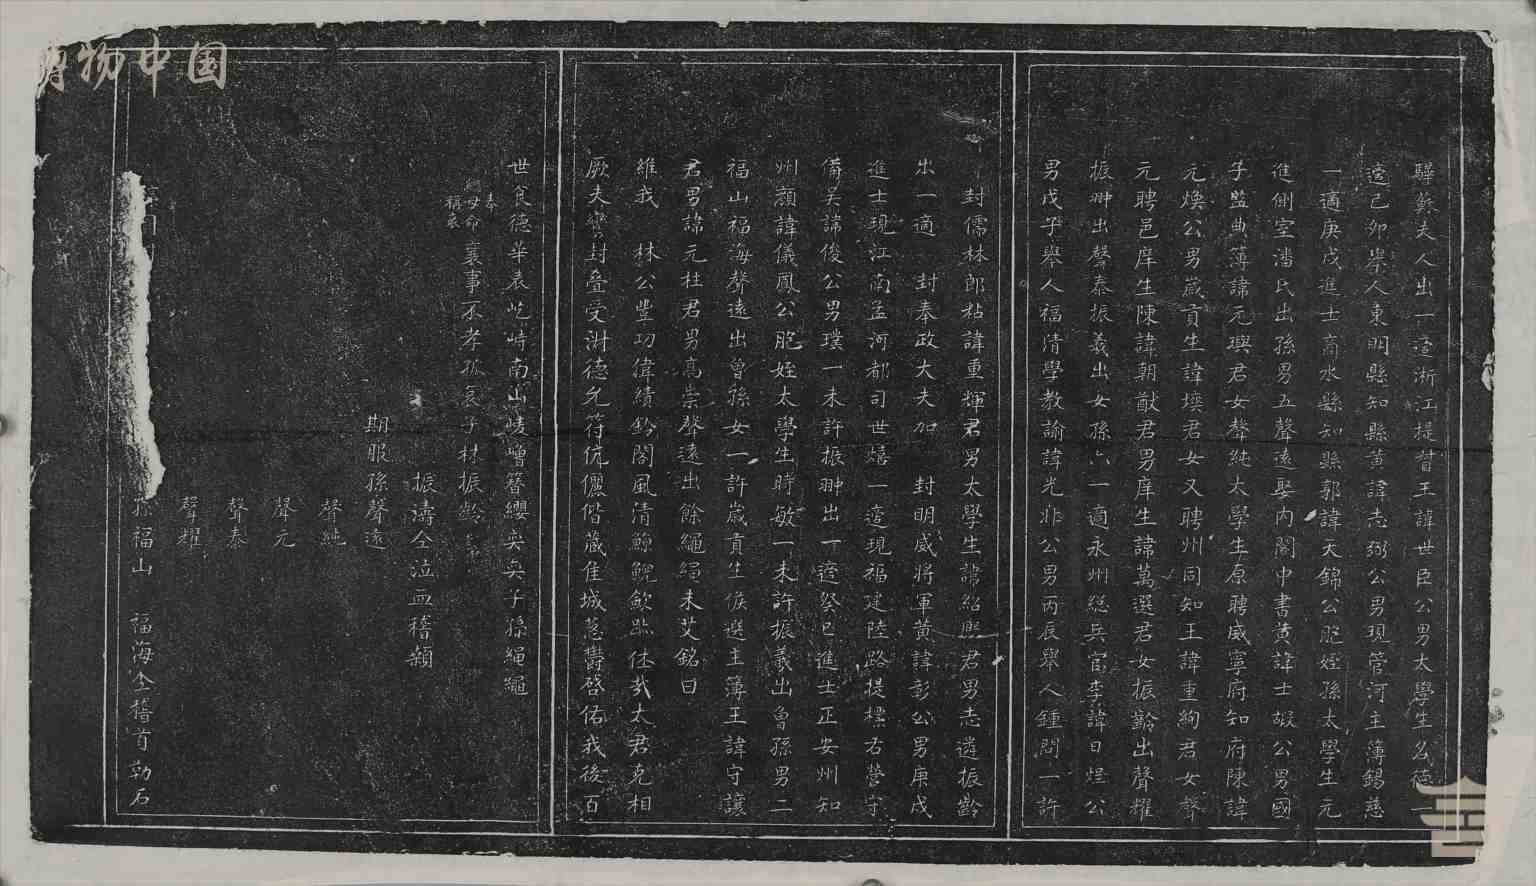 驊蘇夫人出一適浙江提督王諱世臣公男太學生名德一
適己卯舉人東明縣知縣黃諱志弼公男現管河主簿錫慈
一適庚戌進士高水縣知縣郭諱天錦公胞姪孫太學生元
進側室潘氏出孫男五聲遠娶內閣中書黃諱士嘏公男國
子監典簿諱元璵君女聲純太學生原聘威寧府知府陳諱
元煥公男歲貢生諱堜君女又聘州同知王諱重絢君女聲
元聘邑庠生陳諱朝猷君男庠生諱萬選君女振齡出聲耀
振翀出聲泰振羲出女孫六一適永州總兵官李諱日煋公
男戊子舉人福清學教諭諱光非公男丙辰舉人鍾問一許
封儒林郎粘諱重輝君男太學生諱紹熙君男志遴振齡
出一適 封奉政大夫加 封明威將軍黃諱彰公男庚戌
進士現江南孟河都司世嬉一適現福建陸路提標右營守
備吳諱俊公男璞一未許振翀出一適癸巳進士正安州知
州顏諱儀鳳公胞姪太學生時敏一未許振羲出曾孫男二
福山福海聲遠出曾孫女一許歲貢生候選主簿王諱守讓
君男諱元柱君男高崇聲遠出餘繩繩未艾銘曰
維我 林公豐功偉績鈐閣風清鯨鯢歛跡休哉太君克相
厥夫鸞封疊受淑德允符伉儷偕藏佳城蔥鬱啓佑我後百
世食德華表屹峙南山崚嶒簪纓奕奕子孫繩繩
奉
母命
稱哀
襄事不孝孤哀子林振齡
振濤仝泣血稽顙
期服孫聲遠
聲純
聲元
聲泰
聲耀
孫福山 福海仝稽首勒石
博物中国